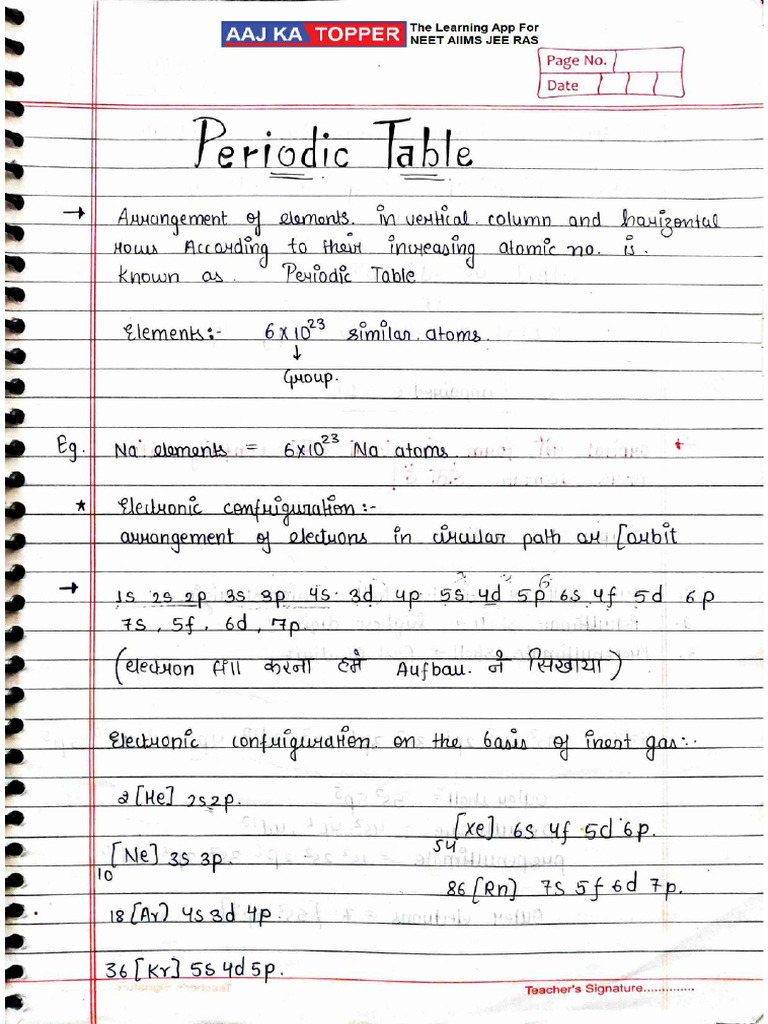 AAJ KA TOPPER The Learning App For
NEET AIIMS JEE RAS
Page No.
Date
Periodic Table
→ Arrangement of elements. in vertical column and horizontal
rows According to their increasing atomic no. is.
known as. Periodic Table
Elements:- 6×10²³ similar atoms.
↓
Group.
Eg. Na elements = 6×10²³ Na atoms.
* Electronic confriguration:-
arrangement of electrons in circular path or [orbit
→ 1s 2s 2p 3s 3p 4s 3d 4p 5s 4d 5p 6s 4f 5d 6p
7s, 5f, 6d, 7p.
(electron fill करना हमे Aufbau ने सिखाया)
Electronic confriguration on the basis of inert gas:-
2 [He] 2s2p.
54 [Xe] 6s 4f 5d 6p.
10 [Ne] 3s 3p.
86 [Rn] 7s 5f 6d 7p.
18 [Ar] 4s 3d 4p.
36 [Kr] 5s 4d 5p.
Teacher's Signature..............